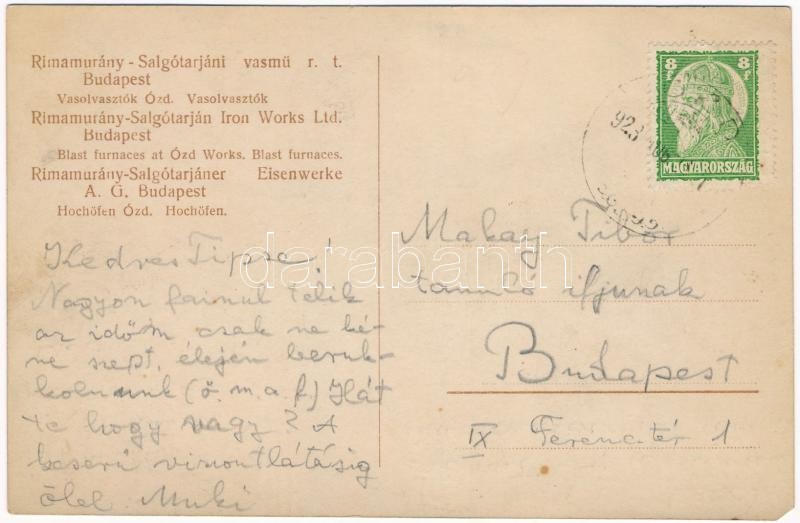 Rimamurány - Salgótarjáni vasmü r. t.
Budapest
Vasolvasztók Ózd. Vasolvasztók
Rimamurány-Salgótarján Iron Works Ltd.
Budapest
Blast furnaces at Ózd Works. Blast furnaces.
Rimamurány-Salgótarjáner Eisenwerke
A. G. Budapest
Hochöfen Ózd. Hochöfen.
8 f 8 f
MAGYARORSZÁG
Kedves Tipse!
Nagyon fainul telik
az időm csak ne ké-
ne szept. élején beruk-
kolnunk (ő. m. a. f.) Hát
te hogy vagy? A
keserű viszontlátásig
ölel Muki
Makay Tibor
tanuló ifjunak
Budapest
IX Ferenc tér 1
darabanth.com